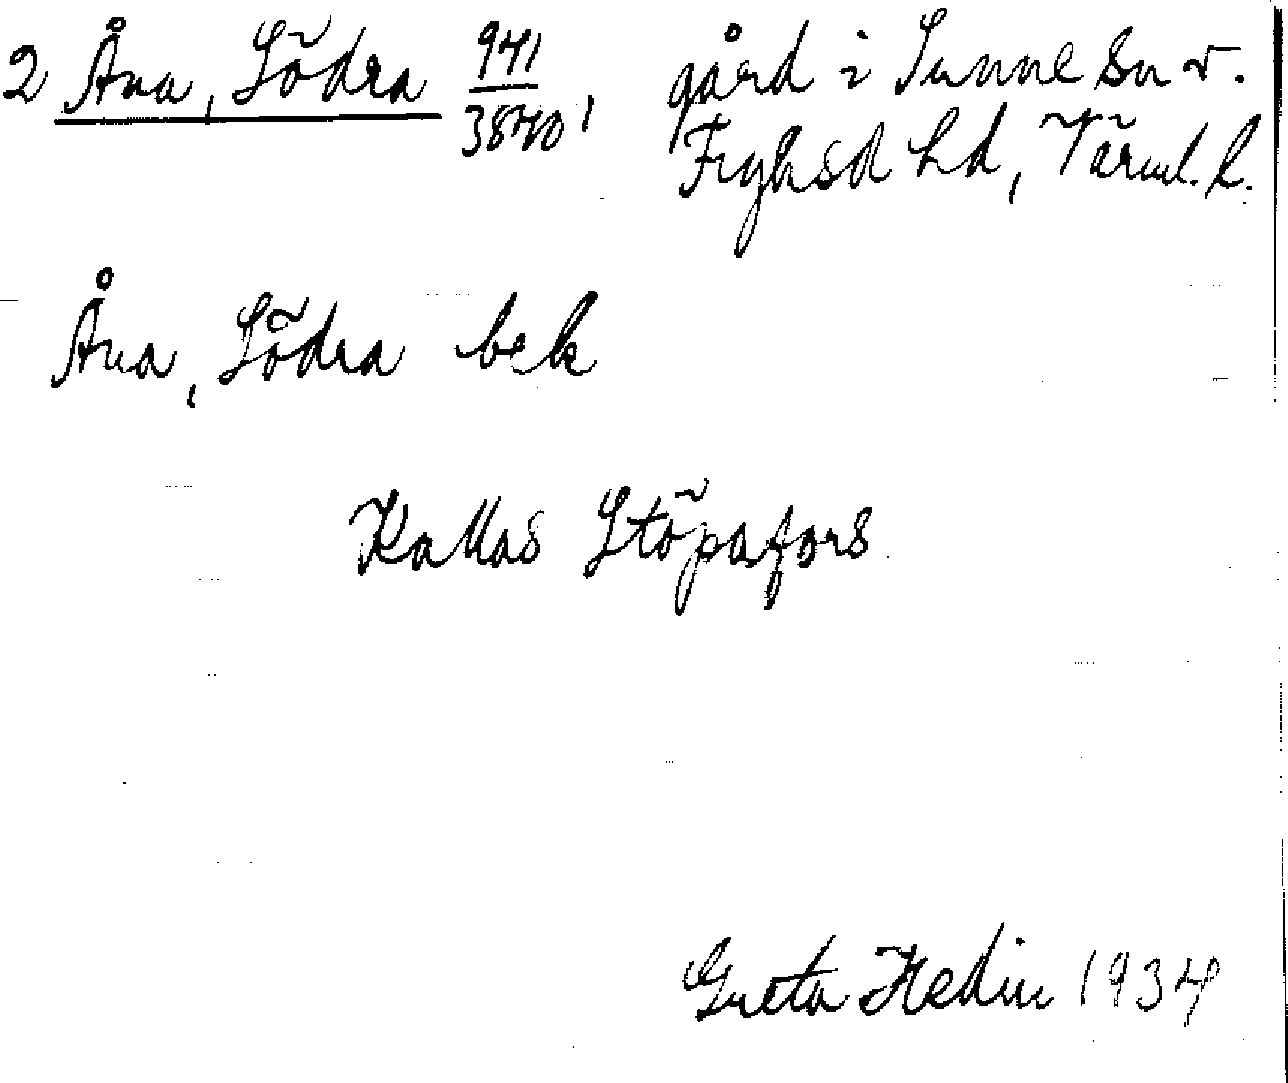 2 Åna, Södra 941/3840, gård i Sunne sn v.
Fryksd hd, Värml. l.
Åna, Södra bek
Kallas Stöpafors
Greta Hedin 1934